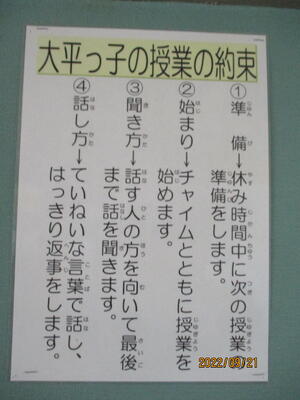 大平っ子の授業の約束
①準　備→休み時間中に次の授業
準備をします。
②始まり→チャイムとともに授業を
始めます。
③聞き方→話す人の方を向いて最後
まで話を聞きます。
④話し方→ていねいな言葉で話し、
はっきり返事をします。